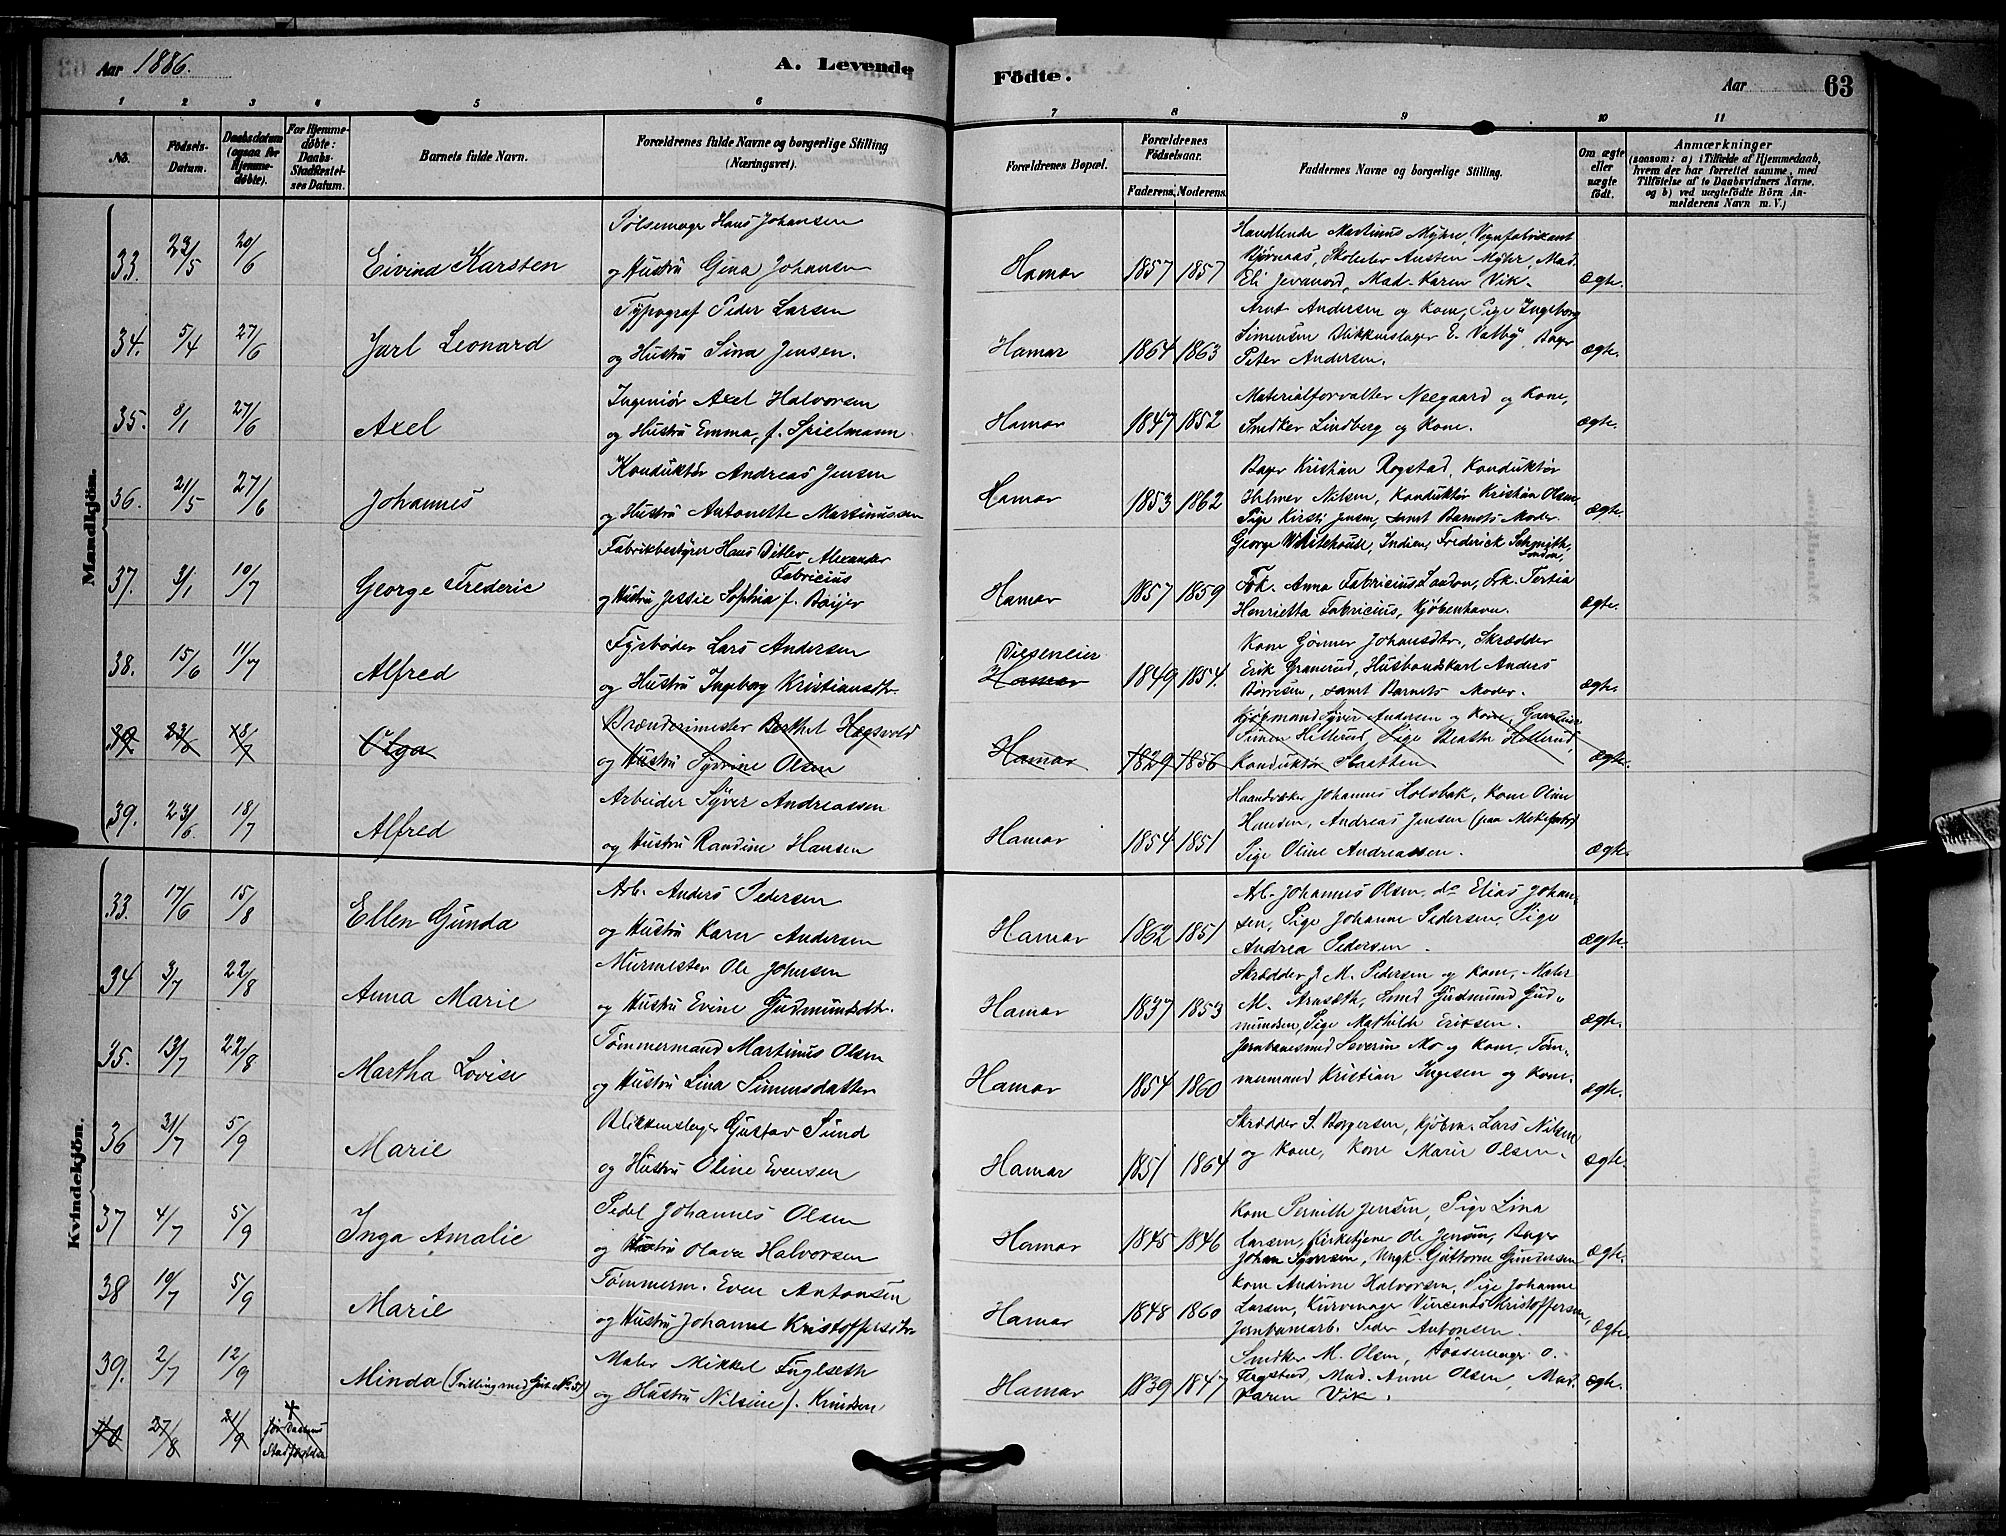 Aar 1886.
A. Levende
Födte.
Aar 63
1 2 3 4 5 6 7 8 9 10 11
No.
Födsels-Datum.
Daabsdatum (ogsaa for Hjemmedöbte).
For Hjemmedöbte: Daabs-Stadfæstelses Datum.
Barnets fulde Navn.
Forældrenes fulde Navne og borgerlige Stilling (Næringsvei).
Forældrenes Bopæl.
Forældrenes Födselsaar.
Faderens. Moderens.
Faddernes Navne og borgerlige Stilling.
Om ægte eller uægte födt.
Anmærkninger
(saasom: a) i Tilfælde af Hjemmedaab,
hvem der har forrettet samme, med
Tilföielse af to Daabsvidners Navne,
og b) ved uægtefödte Börn An-
melderens Navn m. V.)
Mandkjön.
Pølsemager Hans Johansen
33. 23/5 20/6 Eivind Karsten og Hustru Gina Johansen Hamar 1857 1857 ægte.
Handlende Martinus Myhre, Vognfabrikant
Bjørnaas, Skolelev Austen Myhr, Mad.
Eli Jevanord, Mad. Karen Vik.
Typograf Peder Larsen
34. 5/4 27/6 Jarl Leonard og Hustru Sina Jensen. Hamar 1864 1863 ægte.
Arnt Andersen og Kone, Pige Ingeborg
Simensen Blikkenslager E. Valby, Bager
Peter Andersen.
Ingeniør Axel Halvorsen
35. 8/1 27/6 Axel og Hustru Emma, f. Spielmann Hamar 1847 1852 ægte.
Materialforvalter Neegaard og Kone,
Snedker Lindberg og Kone.
Konduktør Andreas Jensen
36. 21/5 27/6 Johannes og Hustru Antonette Martinussen Hamar 1853 1862 ægte.
Bager Kristian Rogstad, Konduktør
Helmer Nilsen, Konduktør Kristian Olsen,
Pige Kirsti Jensen, samt Barnets Moder.
Fabrikbestyrer Hans Ditlev Alexander
Fabricius
37. 3/1 10/7 George Frederic og Hustru Jessie Sophia f. Boijer Hamar 1857 1859 ægte.
George Whitehouse, Indien, Frederick Schmith,
London,
Frk. Anna Fabricius London, Frk. Tertia
Henrietta Fabricius, Kjøbenhavn.
Fyrbøder Lars Andersen
38. 15/6 11/7 Alfred og Hustru Ingeborg Kristiansdtr. Hamar 1849 1854. ægte.
Kone Gunner Johansdtr, Skrædder
Erik Granerud, Husbondskarl Anders
Børresen, samt Barnets Moder.
Brænderimester Berthel Hegsvold
39 23/6 18/7 Olga og Hustru Syverine Olsen Hamar 1829 1856 ægte.
Kjøpmand Syver Andersen og Kone, Gaardeier
Simen Hillerud, Pige Beathe Hillerud,
Konduktør Staatten
Arbeider Syver Andreassen
39. 23/6 18/7 Alfred og Hustru Randine Hansen Hamar 1854 1851 ægte.
Haandværker Johannes Holsbak, Kone Oline
Hansen, Andreas Jensen
Pige Oline Andreassen.
Kvindekjön.
Arb. Anders Pedersen
33. 17/6 15/8 Ellen Gunda og Hustru Karen Andersen Hamar 1862 1851 ægte.
Arb. Johannes Olsen, do Elias Johan-
sen, Pige Johanne Pedersen, Pige
Andrea Pedersen.
Murmester Ole Johnsen
34 3/7 22/8 Anna Marie og Hustru Evine Gudmundsdtr. Hamar 1837 1853 ægte.
Skrædder J. M. Pedersen og Kone, Maler
M. Arnseth, Smed Gudmund Gud-
mundsen, Pige Mathilde Eriksen.
Tømmermand Martinus Olsen
35. 13/7 22/8 Martha Lovise og Hustru Lina Simensdatter Hamar 1854 1860 ægte.
Jernbanesmed Severin Mo og Kone, Tøm-
mermand Kristian Ingesen og Kone.
Blikkenslager Gustav Sund
36 31/7 5/9 Marie og Hustru Oline Evensen Hamar 1851 1864 ægte.
Skrædder S. Borgersen, Kjøbm. Lars Nilsen
og Kone, Kone Marie Olsen.
Pedel Johannes Olsen
37 4/7 5/9 Inga Amalie og Hustru Olava Halvorsen Hamar 1845 1846 ægte.
Kone Pernille Jensen, Pige Lina
Larsen, Kirketjener Ole Jensen, Bager
Johan Syversen, Ungk. Guttorm Gundersen
Tømmerm. Even Antonsen
38 10/7 5/9 Marie og Hustru Johanne Kristoffersdtr. Hamar 1848 1860 ægte.
Kone Andrine Halvorsen, Pige Johanne
Larsen, Kurvemager Vincents Kristoffersen,
Jernbanearb. Peder Antonsen.
Maler Mikkel Fuglseth
39. 2/7 12/9 Minda (Tvilling med Gut No 51) og Hustru Nilsine f. Knudsen Hamar 1839 1847 ægte.
Snedker M. Olsen, Bøssemager O.
Fergstad, Mad. Anne Olsen, Mad.
Karen Vik.
40 27/8 21/9 før Daabens
Stadfæstelse